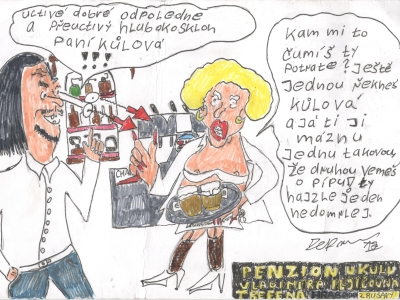 uctivé dobré odpoledne
a Přeuctivý hlubokosklon
paní KŮLOVÁ
!!!
Kam mi to
čumíš ty
Potrate? ještě
jednou řekneš
KŮLOVÁ
a já ti ji
máznu
jednu takovou,
že druhou vemeš
o pípu! ty
hajzle jeden
nedomrlej.
PENZION U KULU
VLADIMÍRA
TŘEŠTĚNÁ